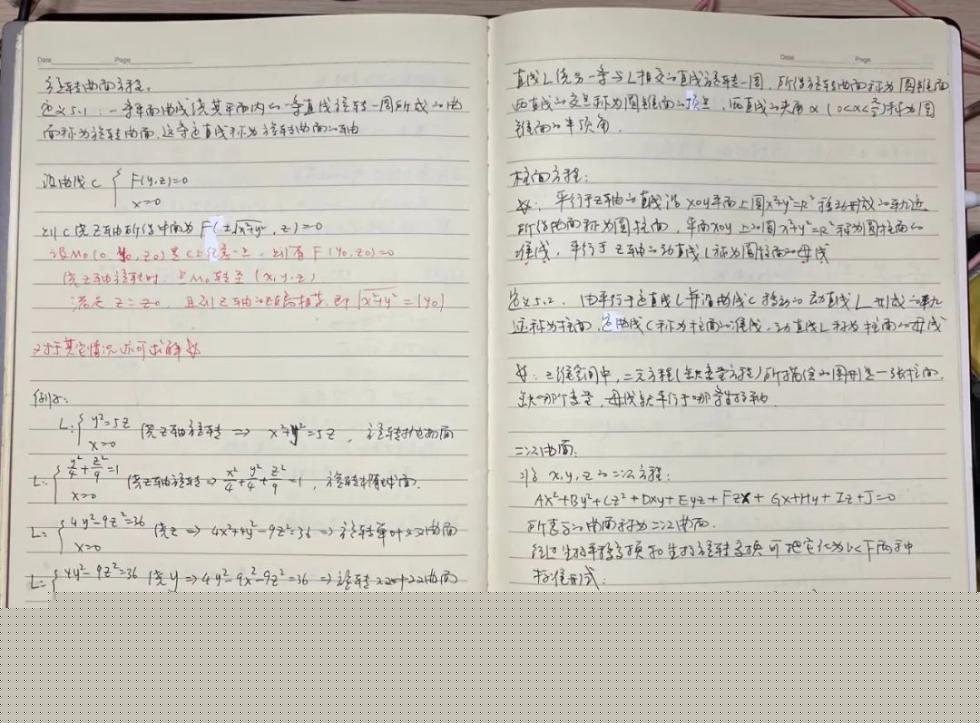 Date Page
旋转曲面方程:
定义5.1: 一条平面曲线绕其平面内的一条直线旋转一周所成的曲
面称为旋转曲面,这条定直线称为旋转曲面的轴
设曲线C { F(y,z)=0
x=0
则C绕Z轴所得曲面为 F(±√x²+y², z)=0
设M₀(0, y₀, z₀)是C上任意一点, 则有 F(y₀,z₀)=0
绕Z轴旋转时, 点M₀转至 (x,y,z)
满足 z=z₀, 且到Z轴的距离相等, 即 √x²+y² = |y₀|
对于其它情况亦可求解
例:
L: { y²=5z 绕Z轴旋转 ⇒ x²+y²=5z, 旋转抛物面
x=0
L: { y²/4+z²/9=1 绕Z轴旋转 ⇒ x²/4+y²/4+z²/9=1, 旋转椭球面
x=0
L: { 4y²-9z²=36 绕z ⇒ 4x²+4y²-9z²=36 ⇒ 旋转单叶双曲面
x=0
L: { 4y²-9z²=36 绕y ⇒ 4y²-9x²-9z²=36 ⇒ 旋转双叶双曲面
Date Page
直线L绕另一条与L相交的直线旋转一周, 所得旋转曲面称为圆锥面
两直线的交点称为圆锥面的顶点, 两直线的夹角α (0<α<π/2)称为圆
锥面的半顶角.
柱面方程:
平行于Z轴的直线沿xoy平面上圆x²+y²=R²移动形成的轨迹
所得曲面称为圆柱面, 平面xoy上的圆x²+y²=R²称为圆柱面的
准线, 平行于Z轴的动直线L称为圆柱面的母线
定义5.2. 由平行于定直线L并沿曲线C移动的动直线L形成的轨
迹称为柱面, 定曲线C称为柱面的准线, 动直线L称为柱面的母线
三维空间中, 二元方程(缺变量方程)所描绘的图形是一张柱面,
缺哪个变量, 母线就平行于哪条坐标轴.
二次曲面.
x,y,z的二次方程:
Ax²+By²+Cz²+Dxy+Eyz+Fzx+Gx+Hy+Iz+J=0
所表示的曲面称为二次曲面.
经过坐标平移变换和坐标旋转变换可把它化为以下两种
标准形式: